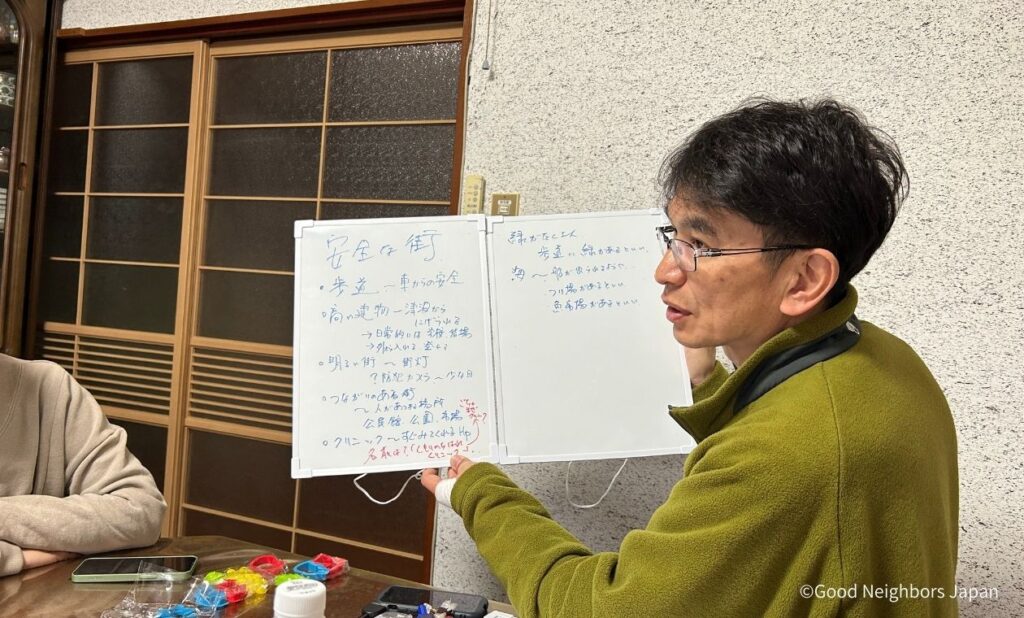 安全な街
・歩道 〜 車からの安全
・高い建物 〜 津波から
にげられる
→日常的には
→外から入れる
・明るい街 〜 街灯
?防犯カメラ〜
・つながりのある街
〜 人があつまる場所
公民館、公園、市場
・クリニック 〜 すぐみてくれるHp
名前は?「くもりのちはれ
クリニック」
緑がたくさん
歩道に緑があるといい。
海 〜
つり場があるといい
魚市場があるといい
©Good Neighbors Japan